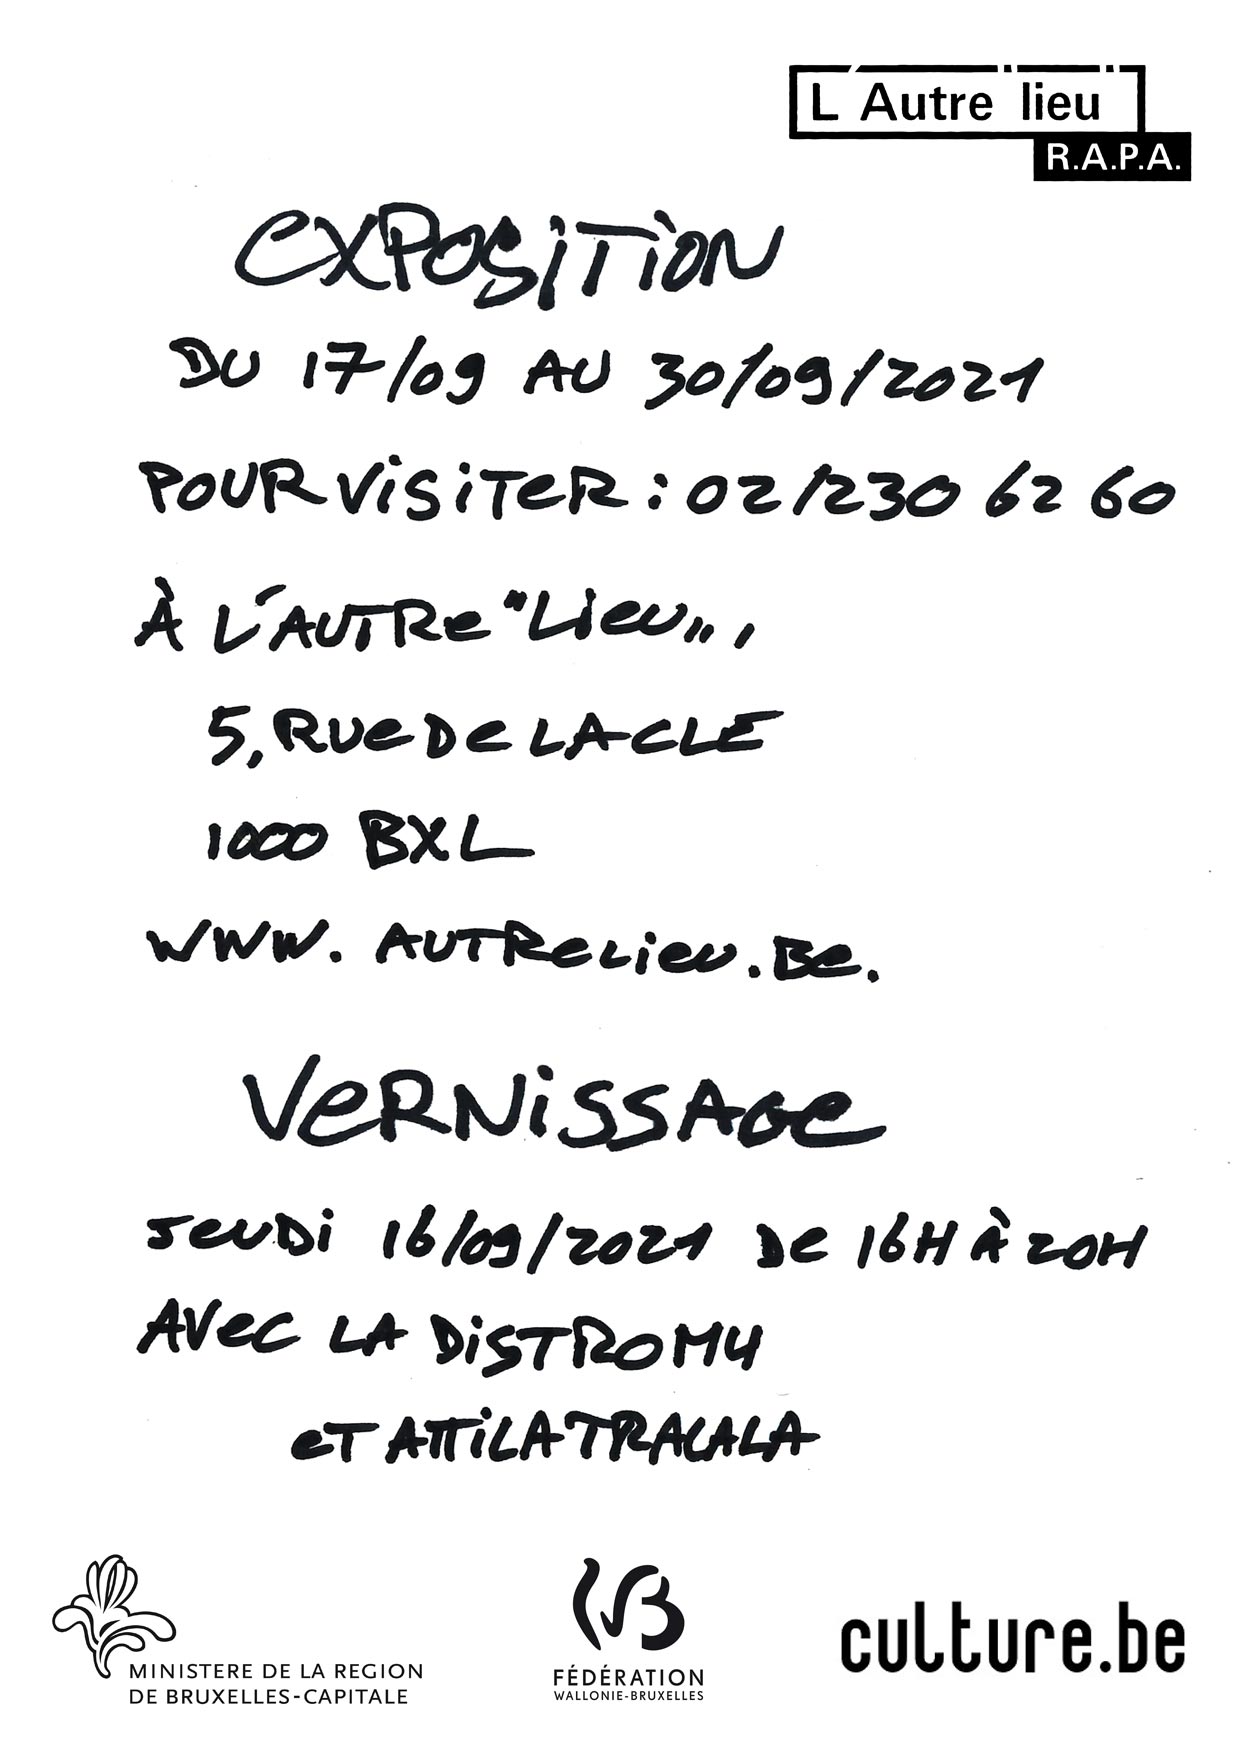 L'Autre "lieu"
R.A.P.A.
EXPOSITION
DU 17/09 AU 30/09/2021
POUR VISITER : 02/230 62 60
À L'AUTRE "LIEU",
5, RUE DE LA CLE
1000 BXL
WWW.AUTRELIEU.BE.
VERNISSAGE
JEUDI 16/09/2021 DE 16H À 20H
AVEC LA DISTROMY
ET ATTILA TRALALA
MINISTERE DE LA REGION
DE BRUXELLES-CAPITALE
FÉDÉRATION
WALLONIE-BRUXELLES
culture.be